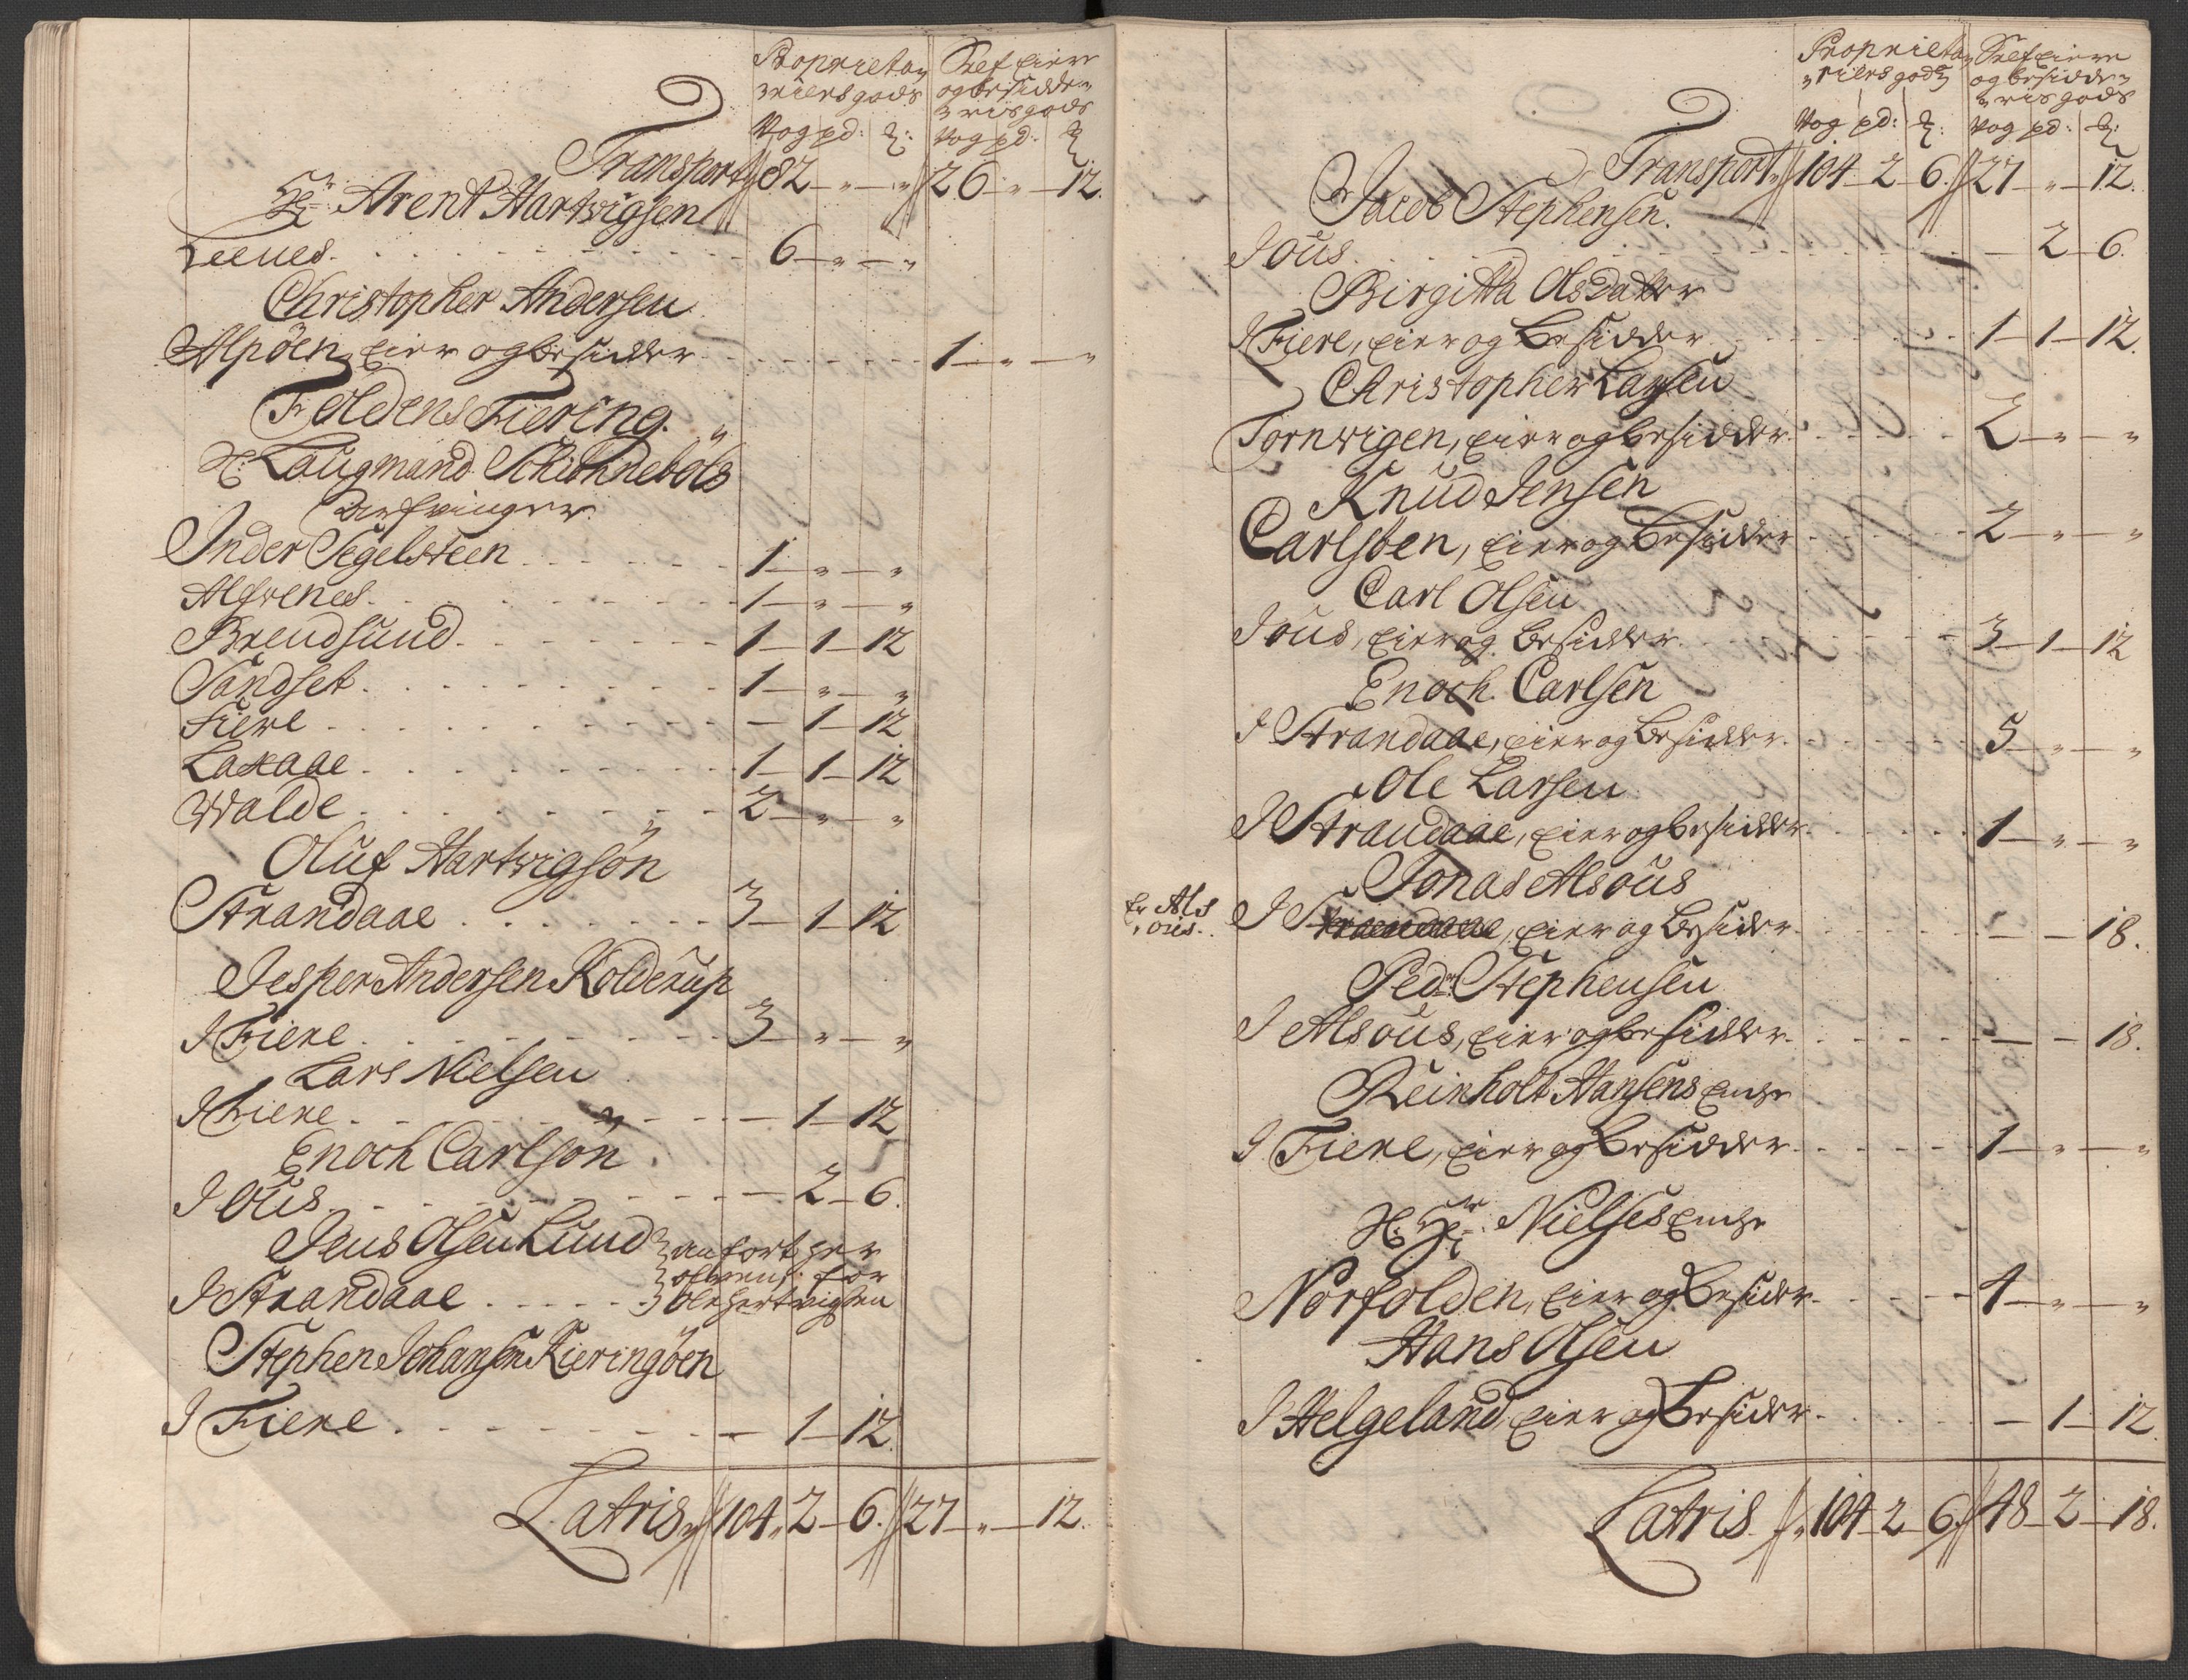 Proprieta- Self eiere
riers gods og besidde-
ris gods
Vog pd: ₰: Vog pd. ₰
Transport 82 - „ - „ 26 - „ - 12.
Hr: Arent Hartvigsen
Leenes . . . 6 - „ - „
Christopher Andersen
Alpöen, eier og besidder . . . 1 - „ - „
Foldens Fiering.
H: Laugmand Schiönneböls
Arfvinger
Inder Tegelsteen . . . 1 - „ - „
Alfvenes . . . 1 - „ - „
Brendsund . . . 1 - 1 - 12
Sandset . . . 1 - „ - „
Fiere . . . - 1 - 12
Laxaae . . . 1 - 1 - 12
Walde . . . 2 - „ - „
Oluf Hartvigsön
Strandaae . . . 3 - 1 - 12
Jesper Andersen Kolderup
I Fiere . . . 3 - „ - „
Lars Nielsen
I Fiere . . . - 1 - 12
Enoch Carlsön
I Ous . . . - 2 - 6.
Jens Olsen Lund anfört her
I Strandaae . . . for
Ole Hertvigsen
Stephen Johansen Kieringöen
I Fiere . . . - 1 - 12.
Latris 104 „ 2 - 6. 27 - „ - 12.
Proprieta- Self eiere
riers gods og besidde-
ris gods
Vog pd: ₰: Vog pd: ₰:
Transport 104 - 2 - 6. 27 - „ - 12.
Jacob Stephensen.
I Ous . . . - 2 - 6.
Birgitta Olsdatter
I Fiere, eier og besidder . . . 1 - 1 - 12.
Christopher Larsen
Tornwigen, eier og besidder . . . 2 - „ - „
Knud Jensen
Carlsöen, eier og besidder . . . 2 - „ - „
Carl Olsen
I Ous, eier og besidder . . . 3 - 1 - 12
Enoch Carlsen
I Strandaae, eier og besidder . . . 5 - „ - „
Ole Larsen
I Strandaae, eier og besidder . . . 1 - „ - „
Jonas Alsous
Er Als
ous. I Strandaae, eier og besider . . . - - 18.
Pedr: Stephensen
I Alsous, eier og besidder . . . - - 18.
Reinholt Hansens Enche
I Fiere, eier og besidder . . . 1 - „ - „
H: Hr: Nielses Enche
Norfolden, eier og besider . . . 4 - „ - „
Hans Olsen
I Helgeland, eier og besider . . . - 1 - 12.
Latris. 104 - 2 - 6. 48 - 2 - 18.